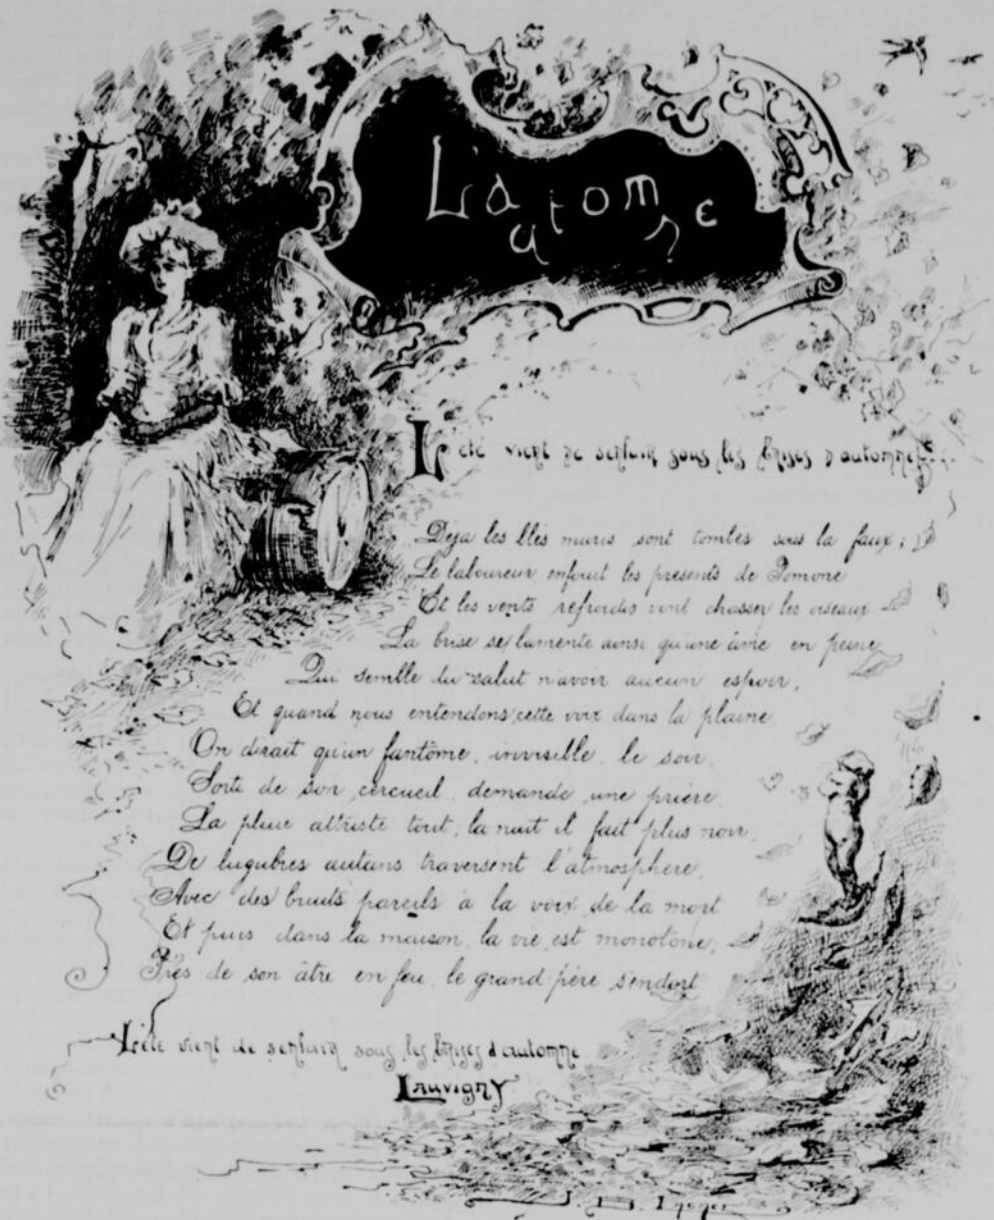 L'automne
L'été vient de s'enfuir sous les brises d'automne...
Déja les blés murs sont tombés sous la faux;
Le laboureur enfouit les présents de Pomone
Et les vents refroidis vont chasser les oiseaux
La brise se lamente ainsi qu'une âme en peine
Qui semble du salut n'avoir aucun espoir,
Et quand nous entendons cette voix dans la plaine
On dirait qu'un fantôme, invisible, le soir,
Sorti de son cercueil, demande une prière,
La pluie attriste tout, la nuit il fait plus noir,
De lugubres autans traversent l'atmosphère,
Avec des bruits pareils à la voix de la mort
Et puis dans la maison, la vie est monotone;
Près de son âtre en feu, le grand père s'endort
L'été vient de s'enfuir sous les brises d'automne
Lauvigny